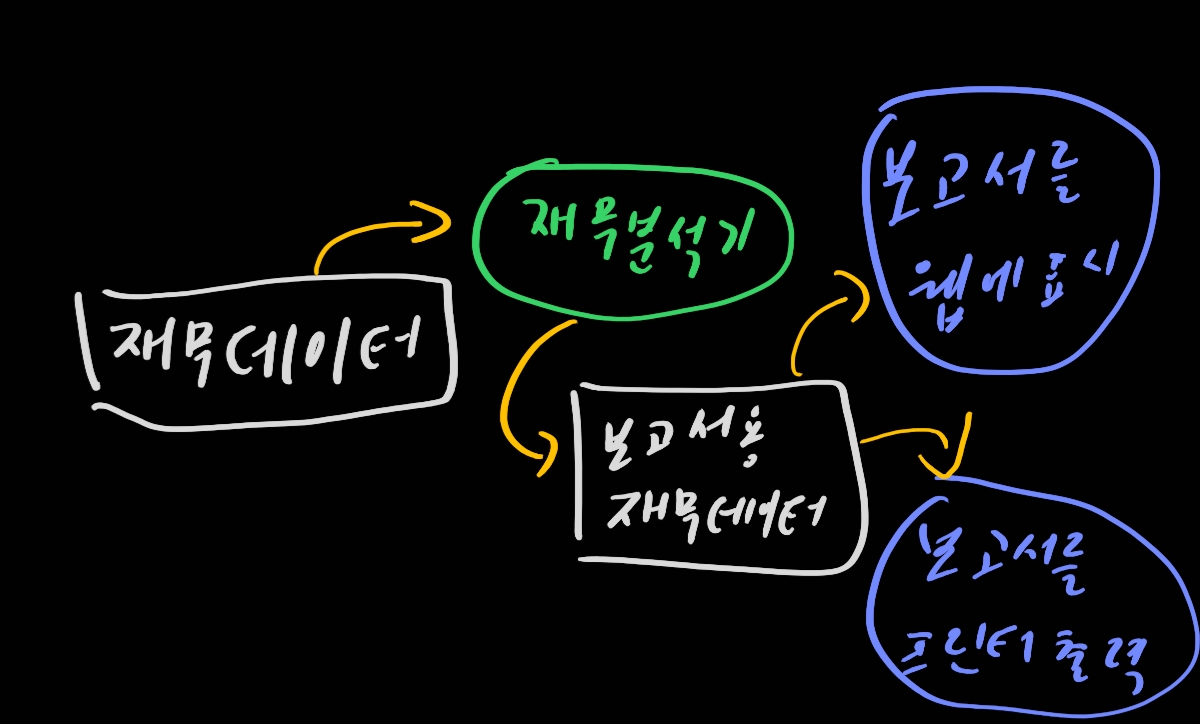 재무데이터
재무분석기
보고서용
재무데이터
보고서를
웹에 표시
보고서를
프린터 출력